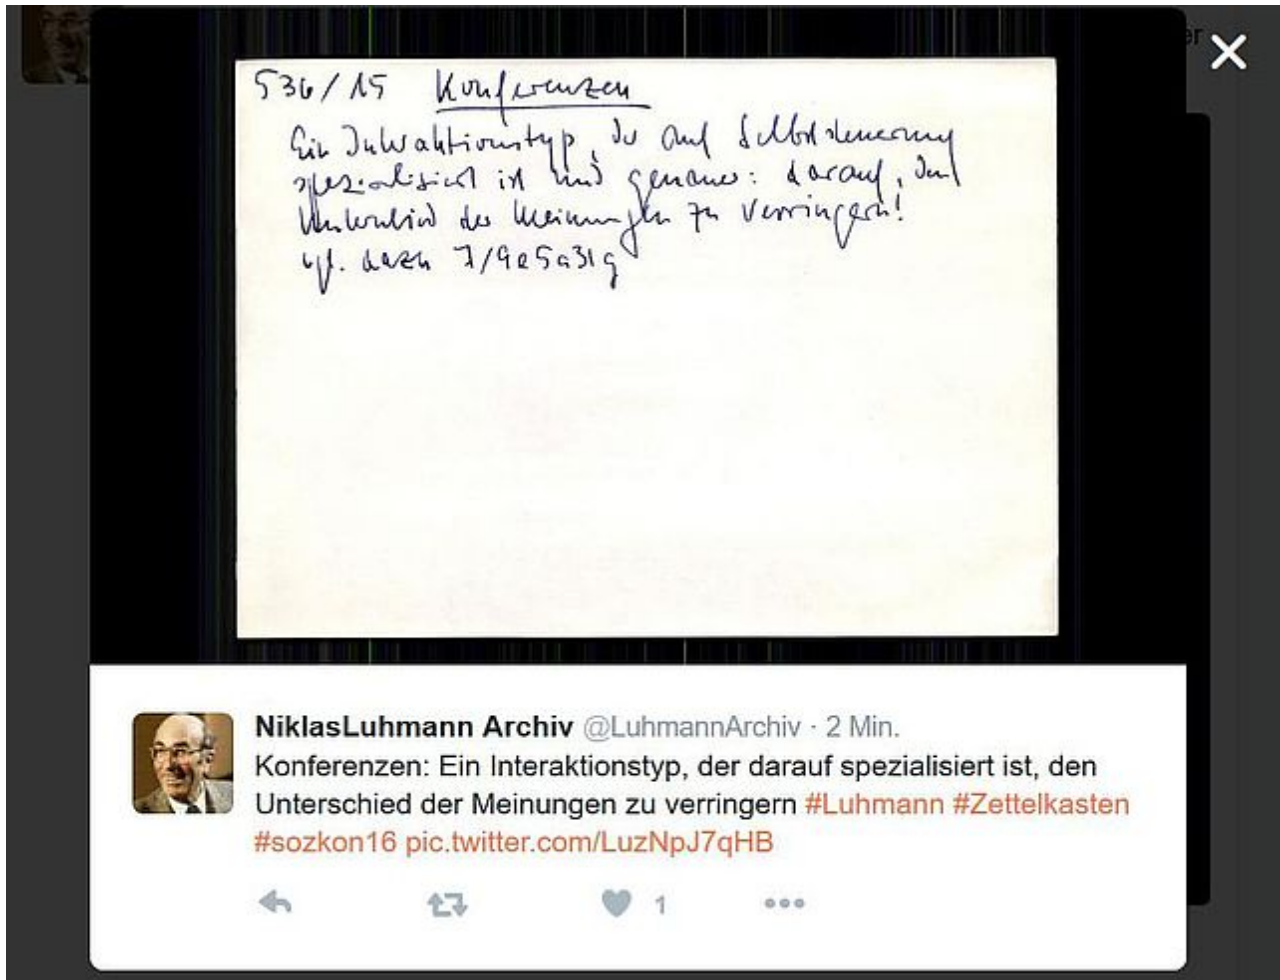 er
536/15 Konferenzen
Ein Interaktionstyp, der auf Selbststeuerung
spezialisiert ist und genauer: darauf, den
Unterschied der Meinungen zu verringern!
vgl. dazu 7/9e5a31g
NiklasLuhmann Archiv @LuhmannArchiv · 2 Min.
Konferenzen: Ein Interaktionstyp, der darauf spezialisiert ist, den
Unterschied der Meinungen zu verringern #Luhmann #Zettelkasten
#sozkon16 pic.twitter.com/LuzNpJ7qHB
1